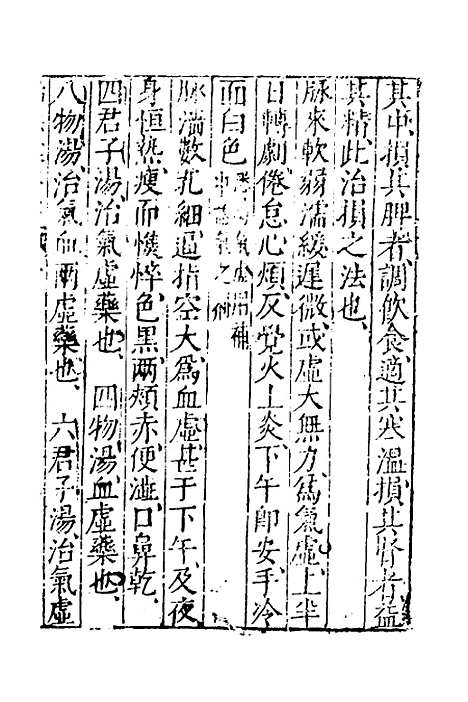 其中、損其脾者、調飲食、適其寒溫、損其腎者、益
其精、此治損之法也、
脉來軟弱濡緩遲微、或虛大無力、爲氣虛、上半
日轉劇、倦怠心煩、反覺火上炎、下午即安、手冷
面白色
脉濇數孔細、逼指空大、爲血虛、甚于下午及夜、
身恒熱、瘦而憔悴、色黑、兩頰赤、便澁、口鼻乾、
四君子湯、治氣虛藥也、四物湯、血虛藥也、
八物湯、治氣血兩虛藥也、六君子湯、治氣虛